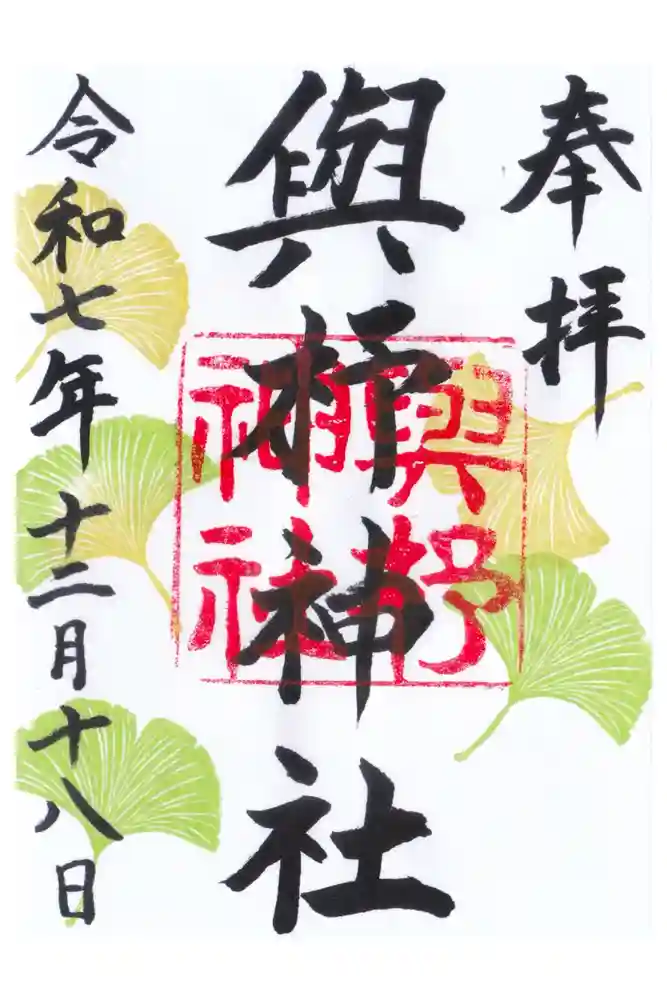 奉拝
與杼神社
與杼
神社
令和七年十二月十八日